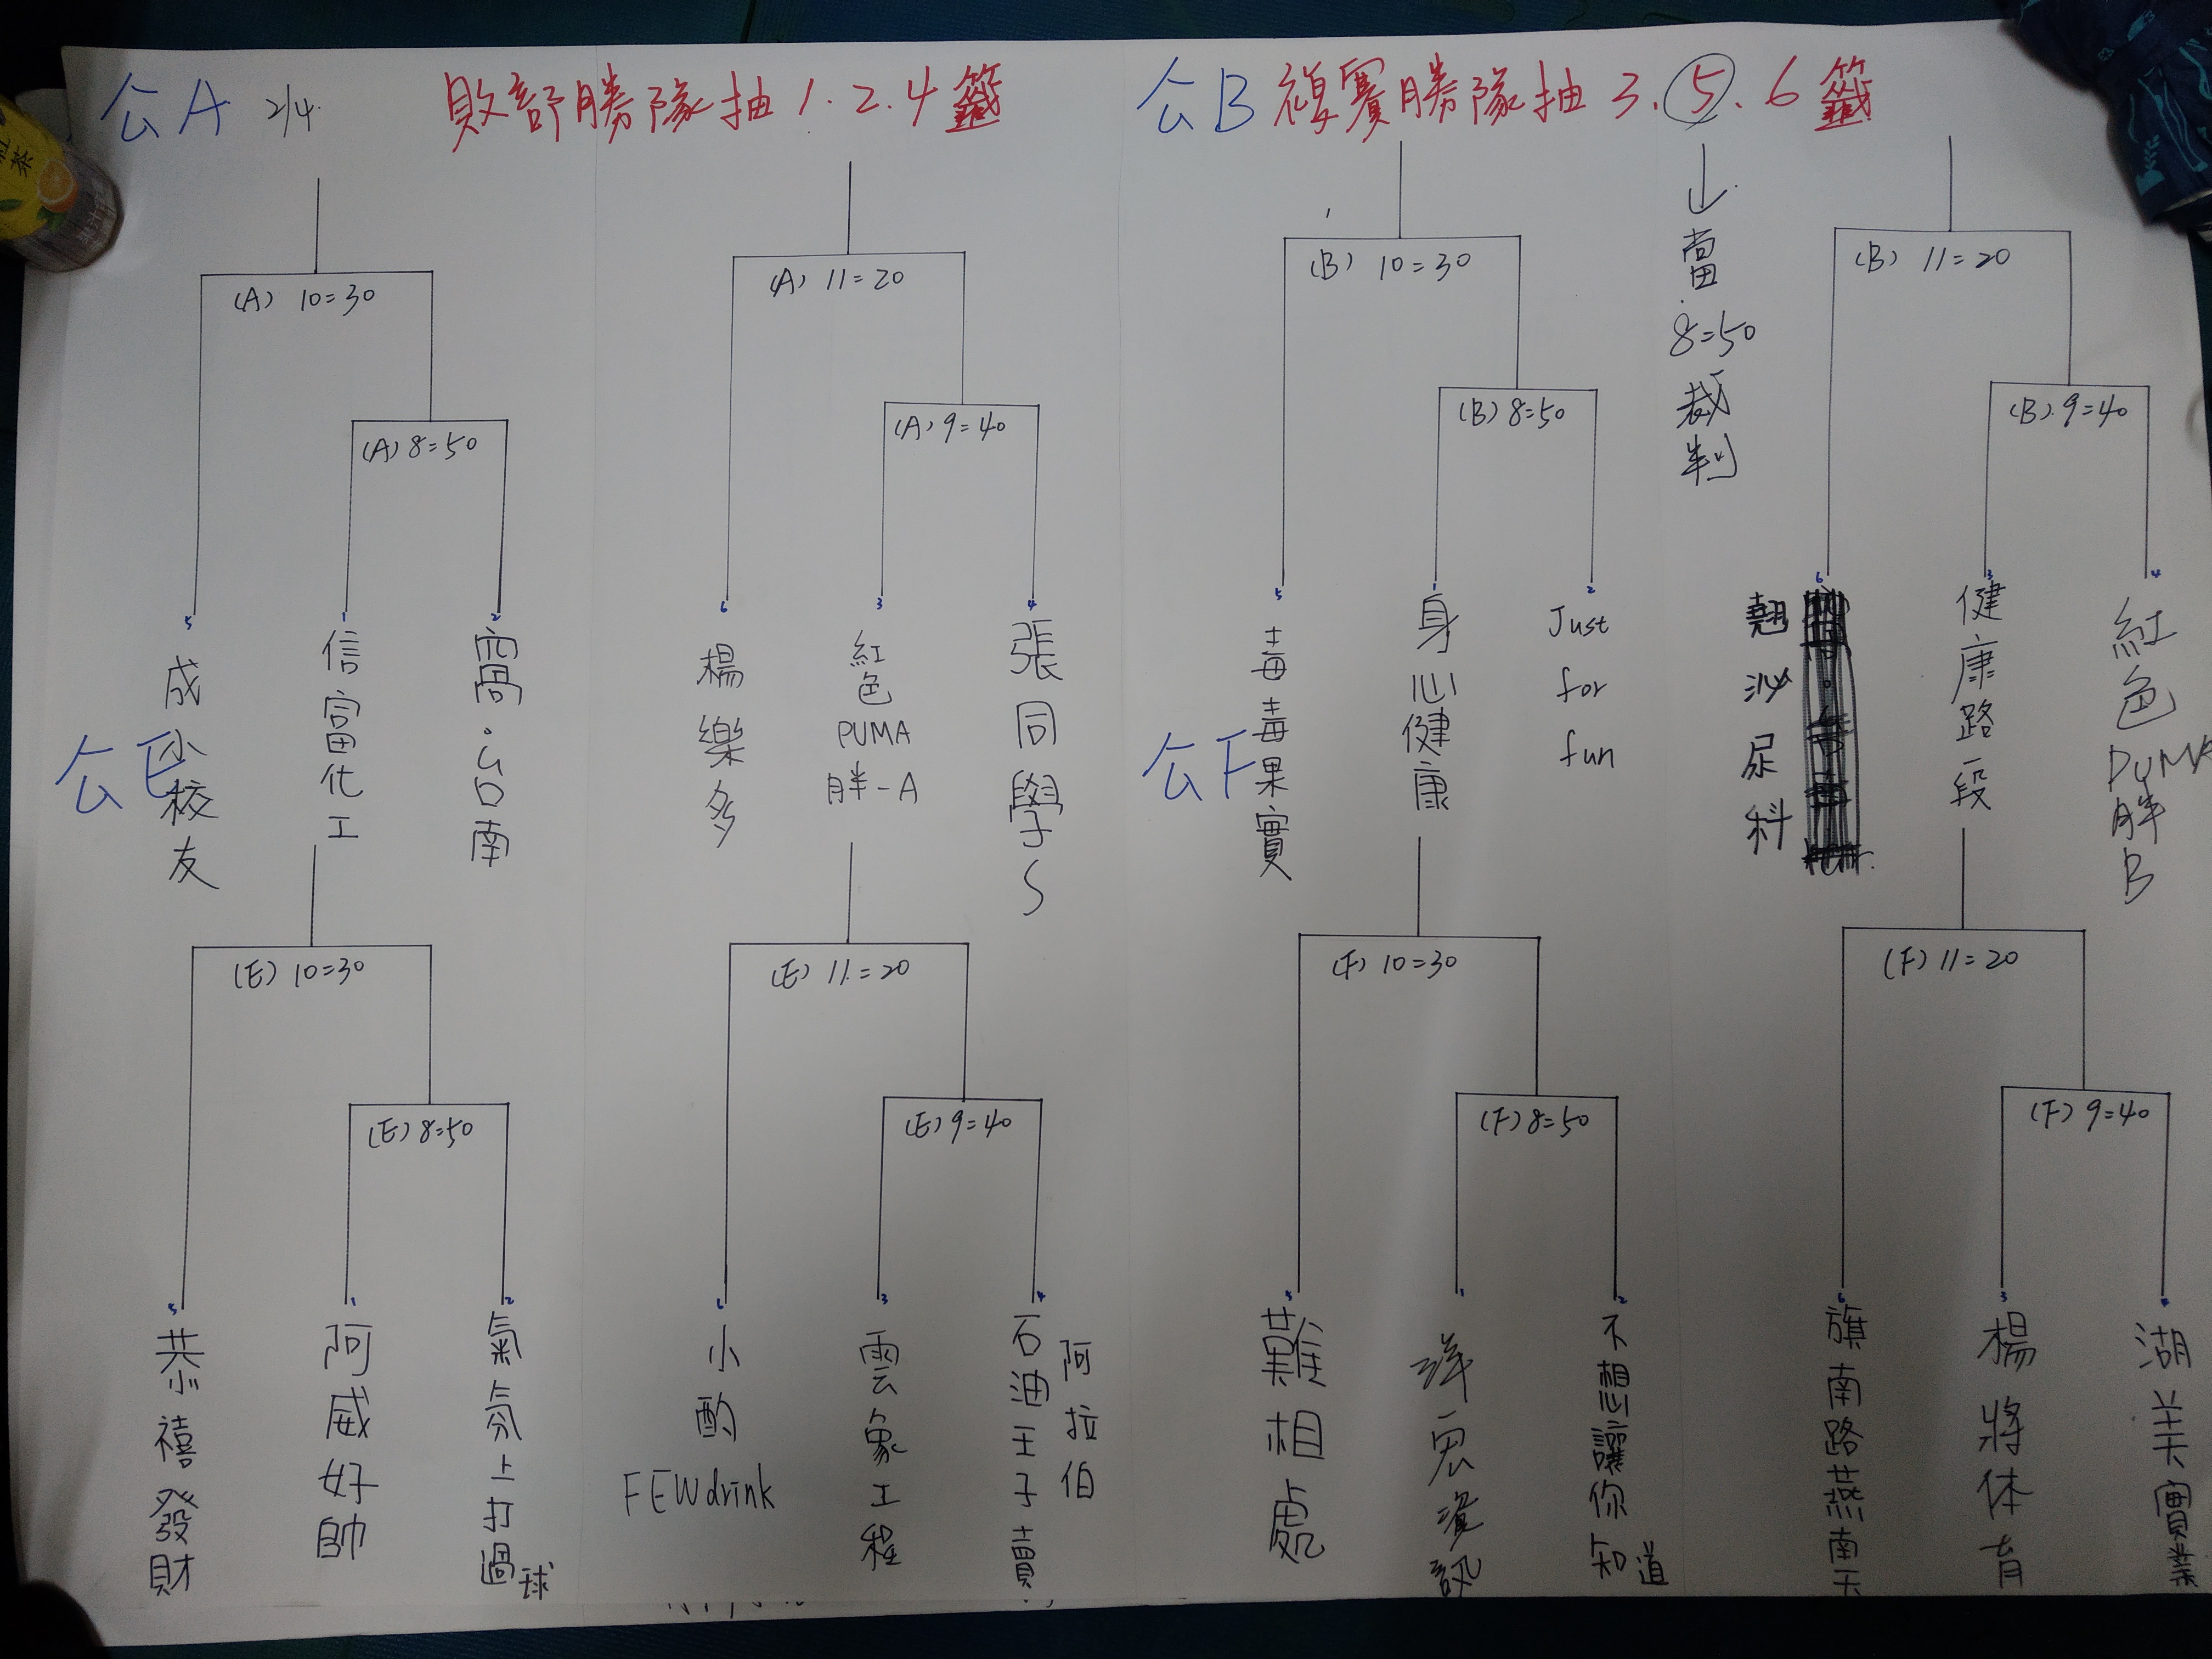 公A 2/4 敗部勝隊抽 1.2.4 籤
公B 複賽勝隊抽 3.⑤.6 籤
↓當 8=50 裁判
(A) 10=30
(A) 8=50
5 成小校友
1 信富化工
2 窩·台南
(A) 11=20
(A) 9=40
6 楊樂多
3 紅色PUMA胖-A
4 張同學S
(B) 10=30
(B) 8=50
5 毒毒果實
1 身心健康
2 Just for fun
(B) 11=20
(B) 9=40
6 翹泌尿科
3 健康路一段
4 紅色PUMA胖B
公E
(E) 10=30
(E) 8=50
5 恭禧發財
1 阿威好帥
2 氣氛上打過球
(E) 11=20
(E) 9=40
6 小酌 FEWdrink
3 雲象工程
4 阿拉伯石油王子賣
公F
(F) 10=30
(F) 8=50
5 難相處
1 資訊
2 不想讓你知道
(F) 11=20
(F) 9=40
6 旗南路燕南天
3 楊將体育
4 湖美實業